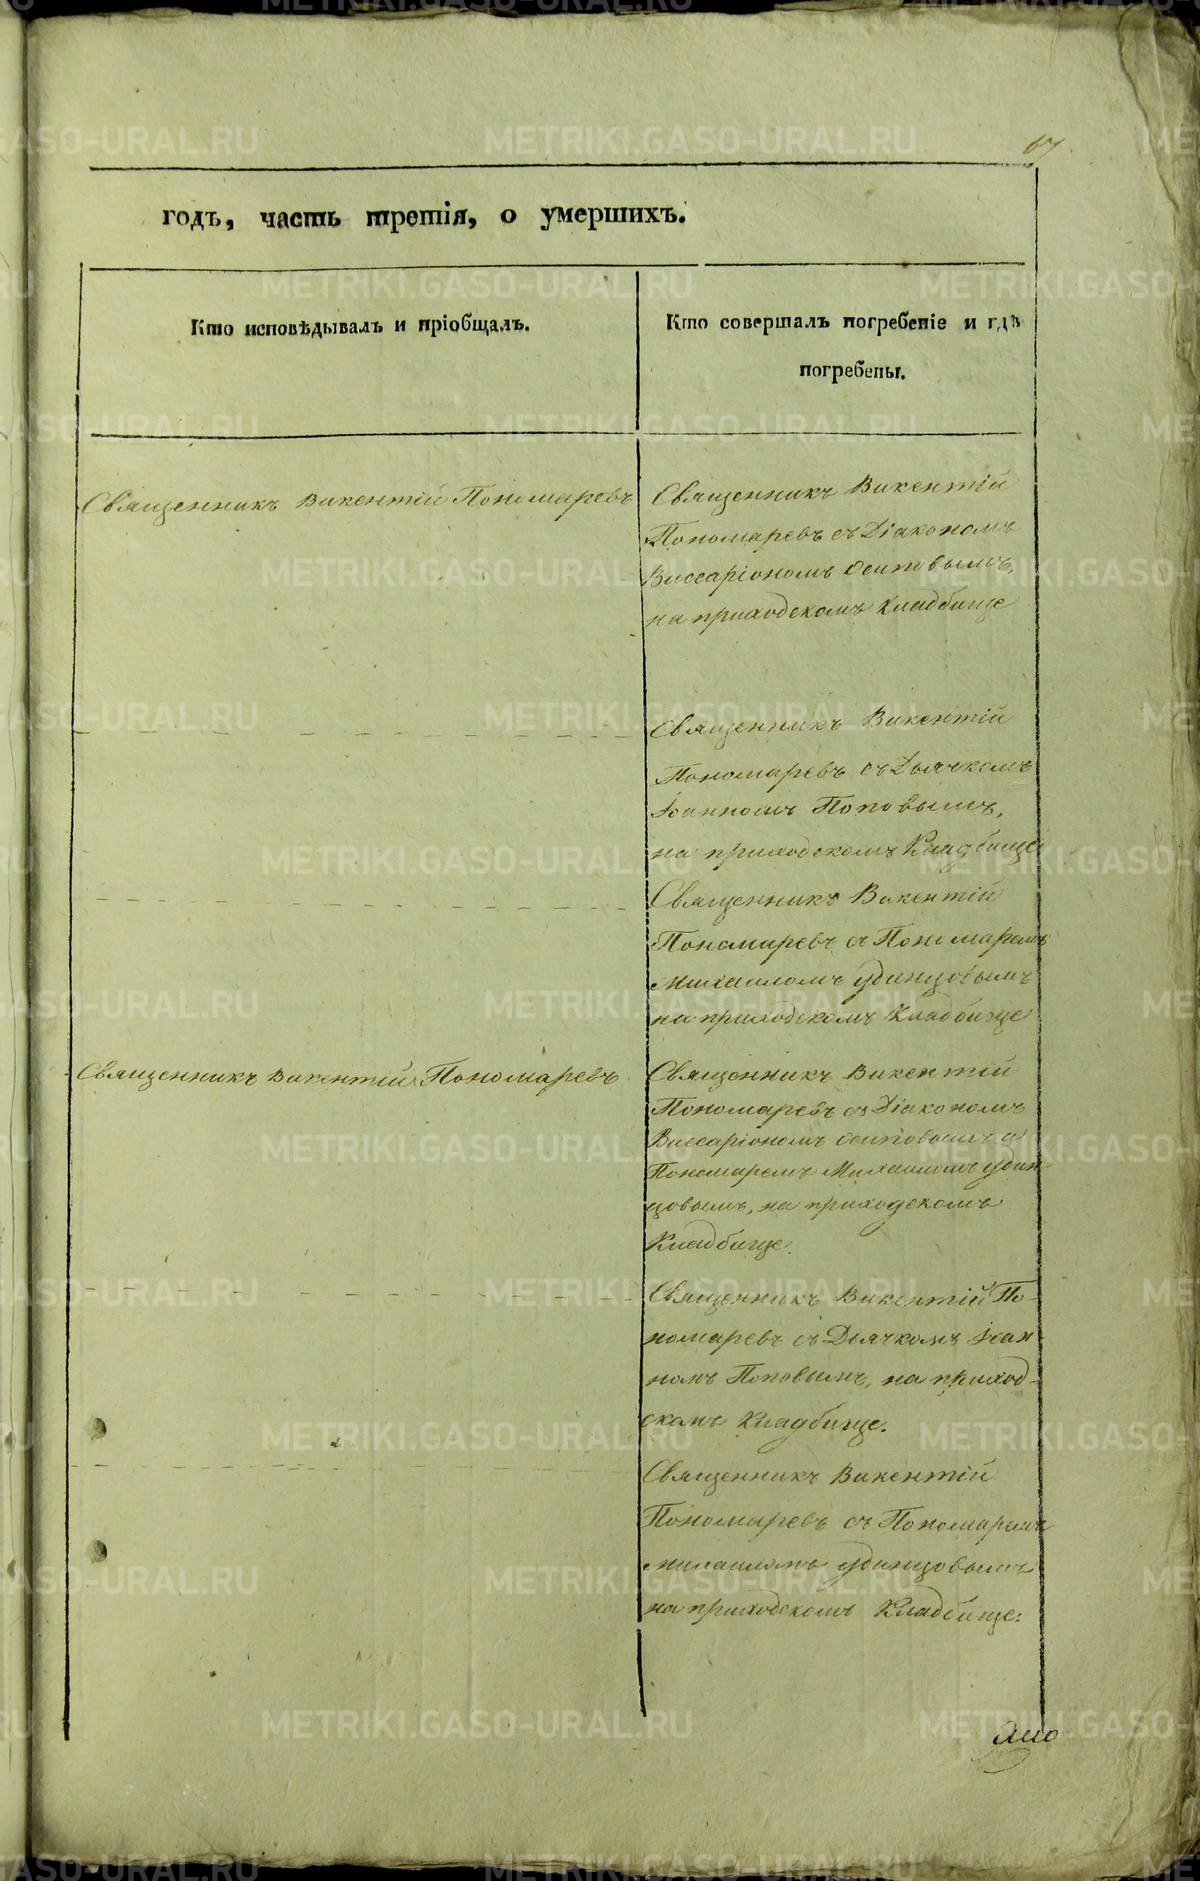 67
годъ, часть третія, о умершихъ.
Кто исповѣдывалъ и пріобщалъ.
Кто совершалъ погребеніе и гдѣ
погребены.
Священникъ Викентій Пономаревъ
Священникъ Викентій
Пономаревъ съ Діакономъ
Виссаріономъ Осиповымъ,
на приходскомъ кладбище
Священникъ Викентій
Пономаревъ съ Дьячкомъ
Іоанномъ Поповымъ,
на приходскомъ Кладбище
Священникъ Викентій
Пономаревъ съ Пономаремъ
Михаиломъ Удинцовымъ
на приходскомъ Кладбище
Священникъ Викентій Пономаревъ
Священникъ Викентій
Пономаревъ съ Діакономъ
Виссаріономъ Осиповымъ и
Пономаремъ Михаиломъ Удин
цовымъ, на приходскомъ
Кладбище.
Священникъ Викентій По-
номаревъ съ Дьячкомъ Іоан
номъ Поповымъ, на приход-
скомъ Кладбище.
Священникъ Викентій
Пономаревъ съ Пономаремъ
Михаиломъ Удинцовымъ
на приходскомъ Кладбище:
METRIKI.GASO-URAL.RU